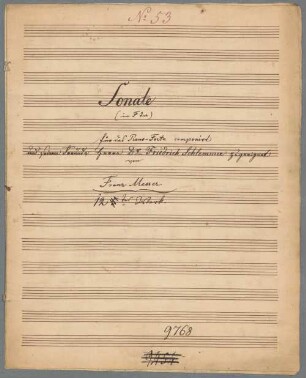 No 53
Sonate
(in F dur)
für das Piano-Forte componirt
und seinem Freunde Herrn Dr. Friedrich Schlemmer zugeeignet
von
Franz Messer
12 tes Werk
9768